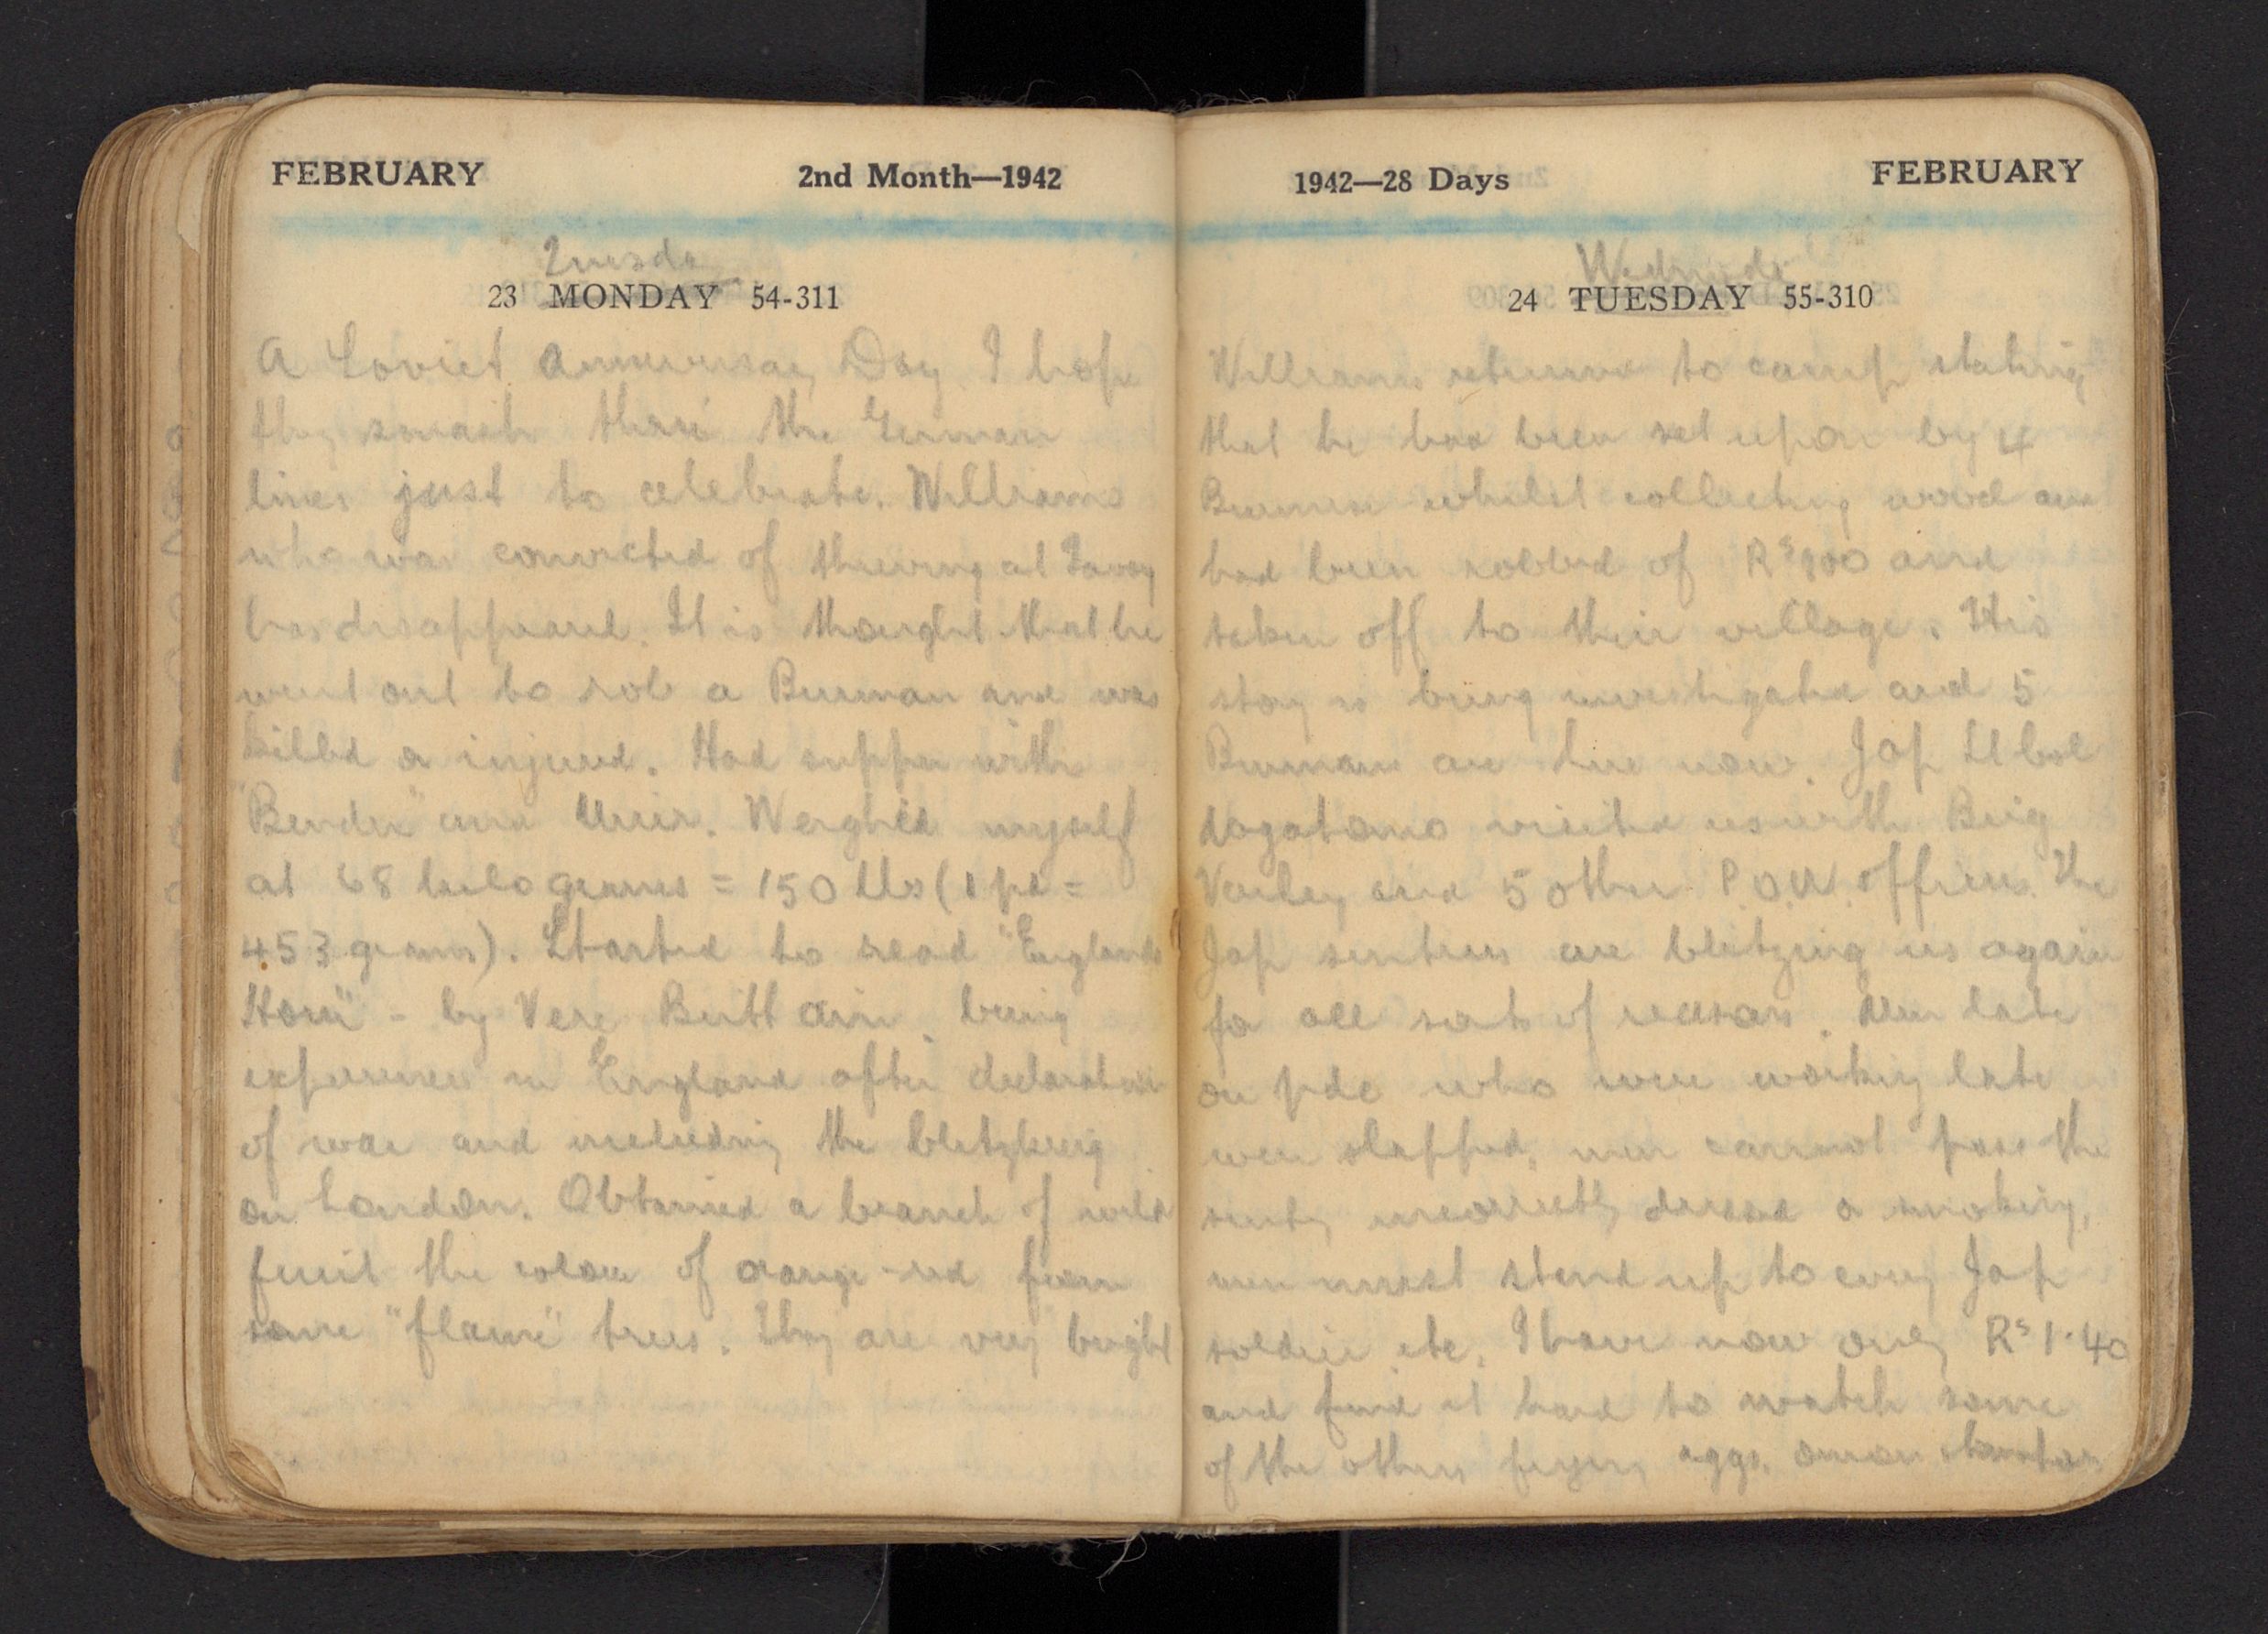 FEBRUARY 2nd Month—1942
Tuesday
23 MONDAY 54-311
A Soviet Anniversary Day I hope
they smash thro' the German
lines just to celebrate. Williams
who was convicted of thieving at Tavoy
has disappeared. It is thought that he
went out to rob a Burman and was
killed or injured. Had supper with
"Bender" and Muir. Weighed myself
at 68 kilogrames = 150 lbs (1 pd =
453 grams). Started to read "Englands
Hour" - by Vera Brittain being
experiences in England after declaration
of war and including the blitzkreig
on London. Obtained a branch of wild
fruit the colour of orange-red from
some "flame" trees. They are very bright
1942—28 Days FEBRUARY
Wednesda
24 TUESDAY 55-310
Williams returned to camp stating
that he had been set upon by 4
Burmese whilst collecting wood and
had been robbed of Rs 800 and
taken off to their village. His
story is being investigated and 5
Burmans are here now. Jap Lt Col
Nagatomo visited us with Brig
Varley and 5 other P.O.W. officers. The
Jap sentries are blitzing us again
for all sorts of reasons. Men late
on pde who were working late
were slapped, men cannot pass the
sentry incorrectly dressed or smoking,
men must stand up to every Jap
soldier etc. I have now only Rs 1.40
and find it hard to watch some
of the others frying eggs, onion